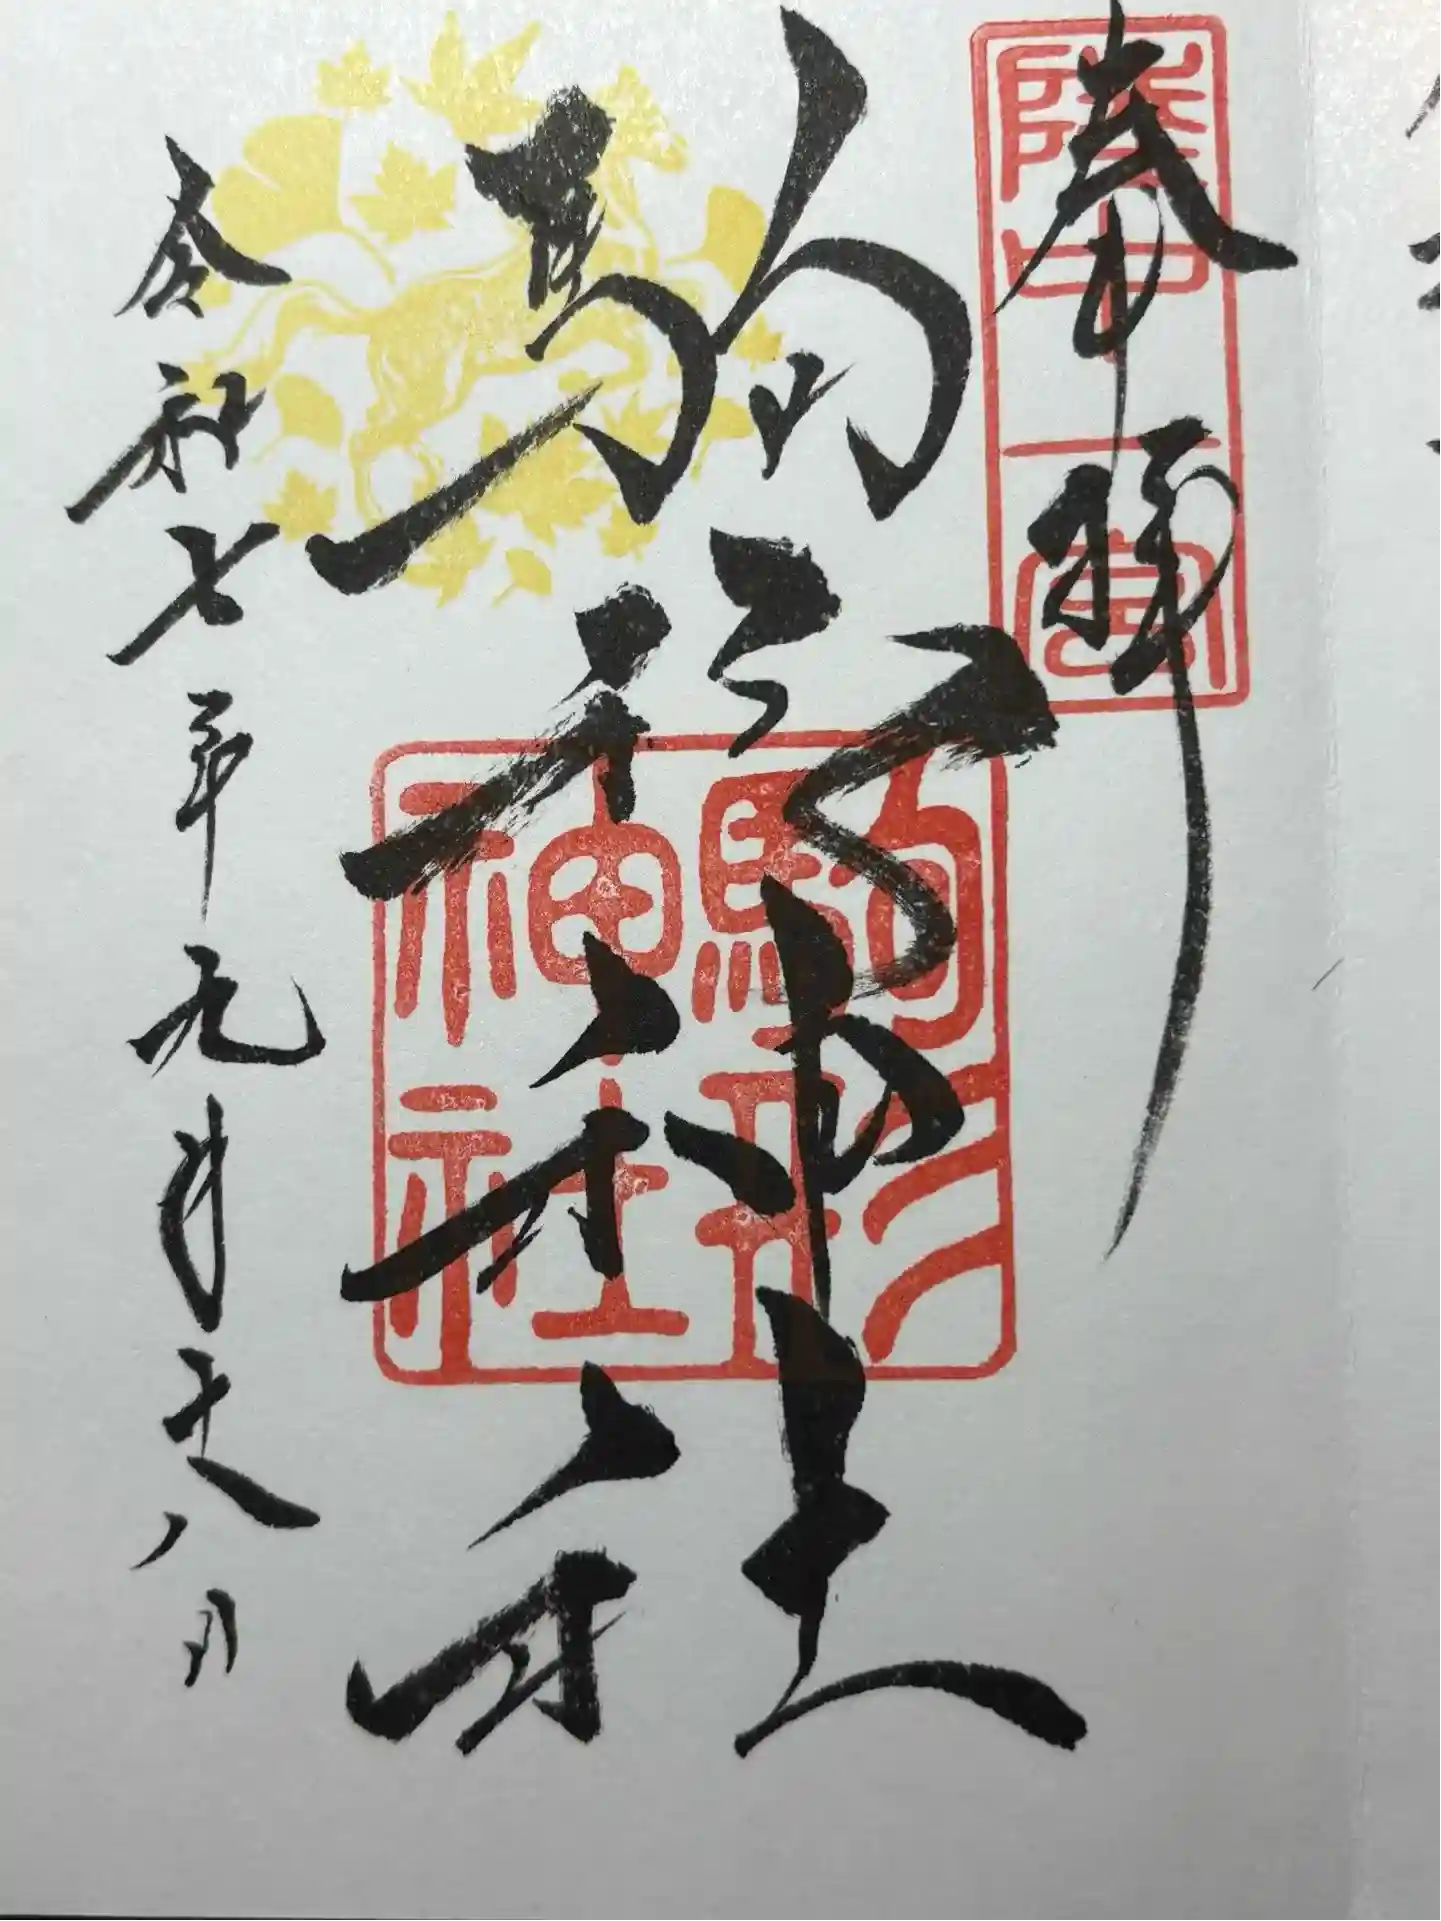 奉拝
陸中一宮
駒形神社
駒形神社
令和七年九月二十八日